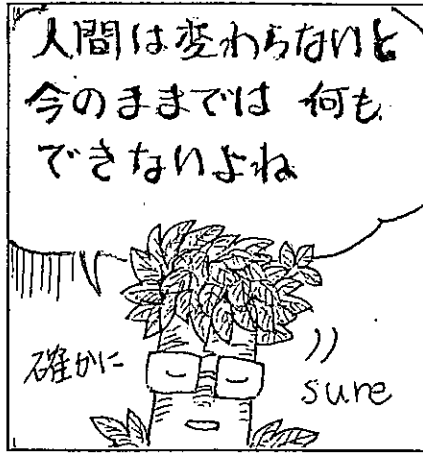 人間は変わらないと
今のままでは 何も
できないよね
確かに
sure